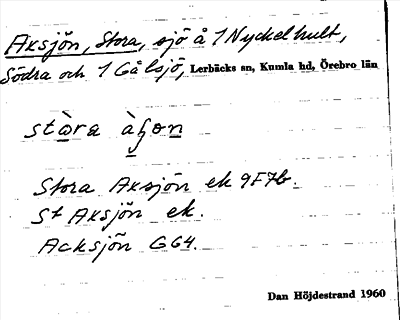 Aksjön, Stora, sjö å 1 Nyckelhult,
Södra och 1 Gålsjö, Lerbäcks sn, Kumla hd, Örebro län
stòra àʃon
Stora Aksjön ek 9F7b.
St Aksjön ek.
Acksjön G64.
Dan Höjdestrand 1960